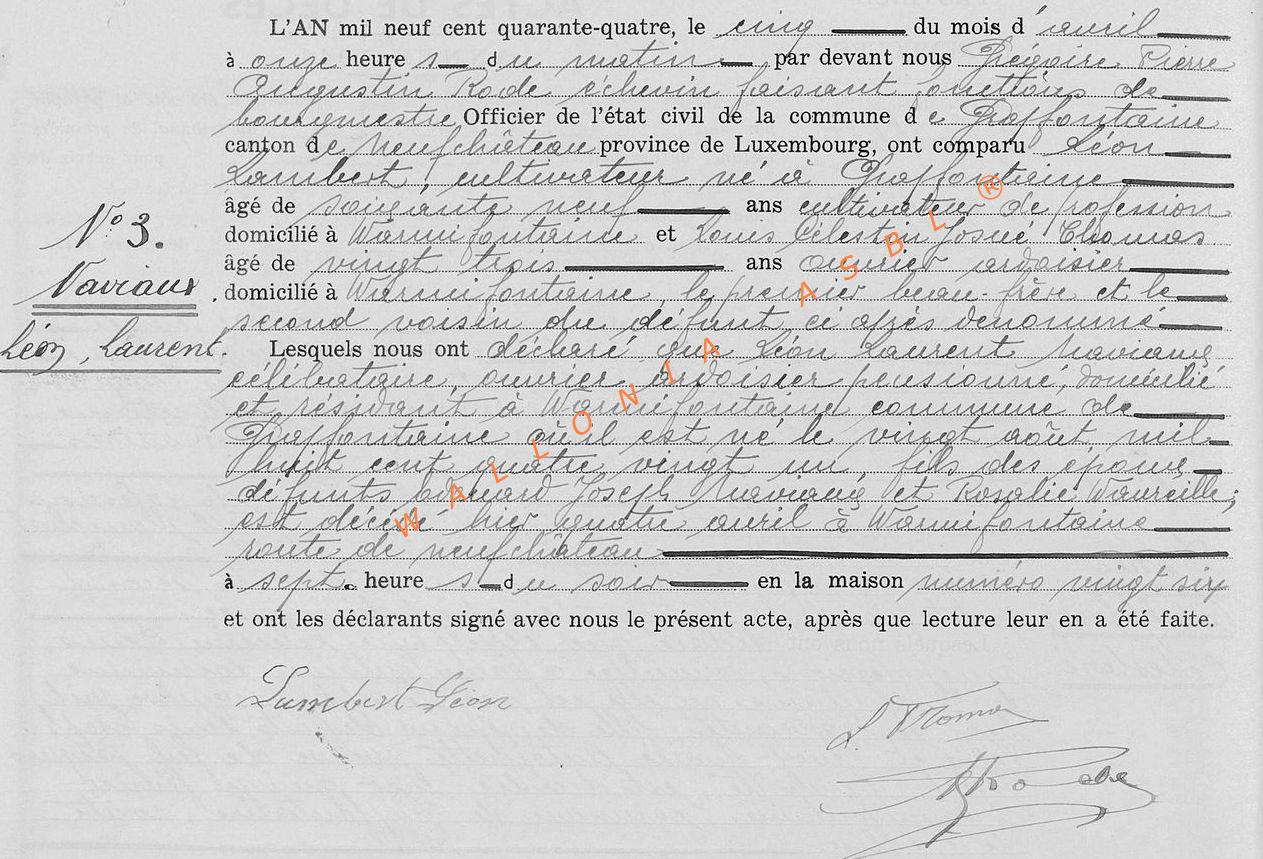 L'AN mil neuf cent quarante-quatre, le cinq du mois d'avril
à onze heures du matin par devant nous Grégoire Pierre
Augustin Rode échevin faisant fonctions de
bourgmestre Officier de l'état civil de la commune de Grapfontaine
canton de Neufchâteau province de Luxembourg, ont comparu Léon
Lambert, cultivateur né à Grapfontaine
âgé de soixante neuf ans cultivateur de profession
domicilié à Warmifontaine et Louis Célestin Josué Thomas
âgé de vingt trois ans ouvrier ardoisier
domicilié à Warmifontaine, le premier beau-frère et le
second voisin du défunt ci après dénommé
Lesquels nous ont déclaré que Léon Laurent Naviaux
célibataire, ouvrier ardoisier pensionné domicilié
et résidant à Warmifontaine commune de
Grapfontaine où il est né le vingt août mil
huit cent quatre vingt un fils des époux
défunts Edouard Joseph Naviaux et Rosalie Waureille;
est décédé hier quatre avril à Warmifontaine
route de Neufchâteau
à sept heures du soir en la maison numéro vingt six
et ont les déclarants signé avec nous le présent acte, après que lecture leur en a été faite.
N° 3.
Naviaux
Léon, Laurent.
Lambert Léon
L. Thomas
Rode
WALLONIA ASBL ®